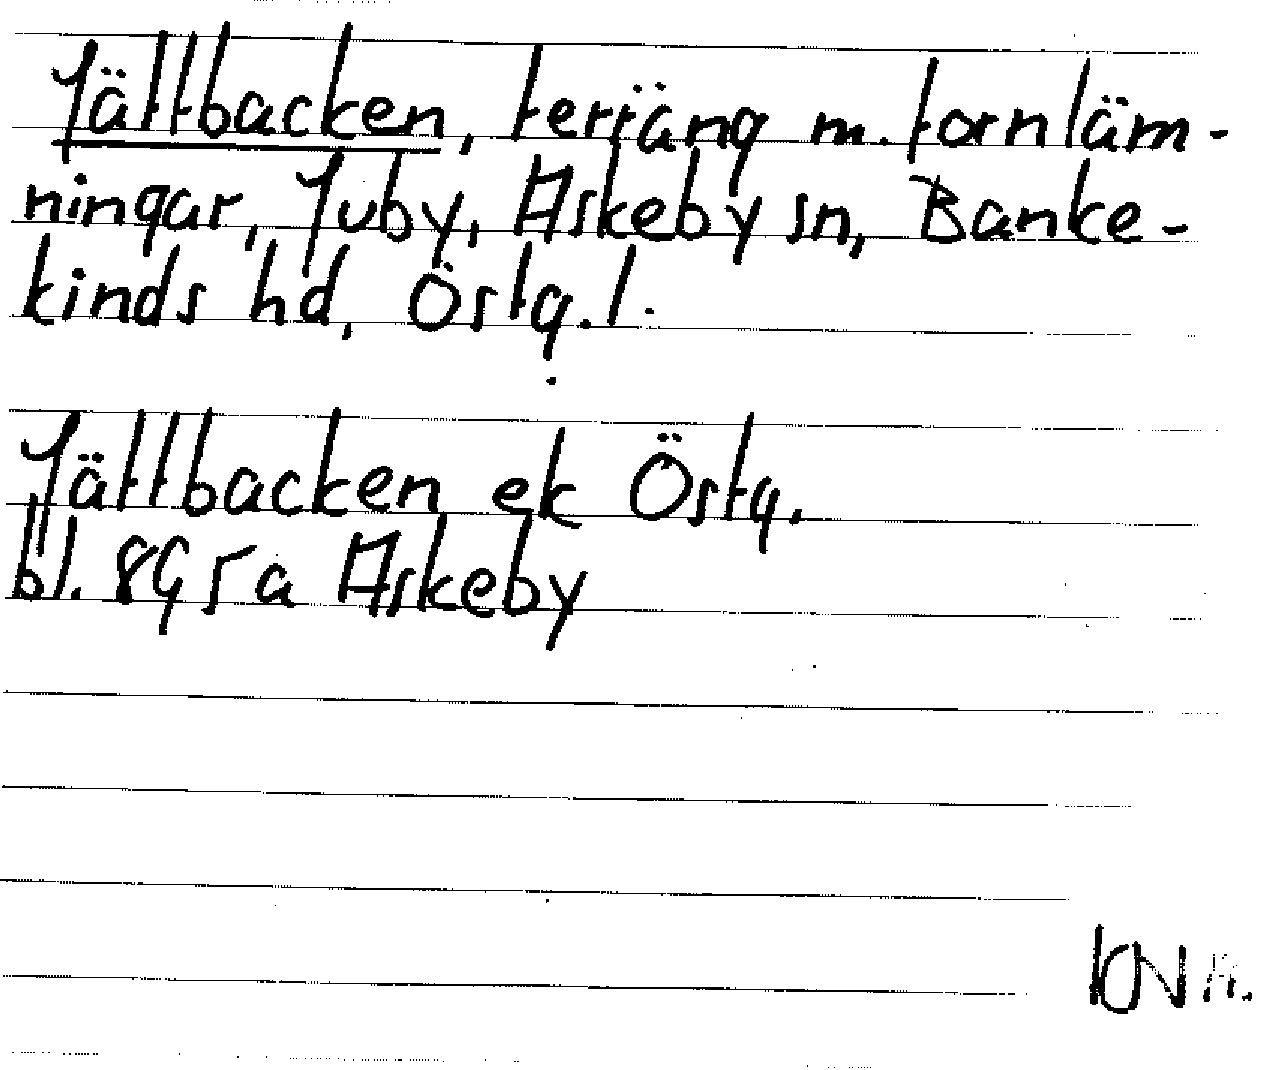 Jättbacken, terräng m. fornläm-
ningar, Juby, Askeby sn, Banke-
kinds hd, Östg. l.
Jättbacken ek Östg.
bl. 8G 5a Askeby